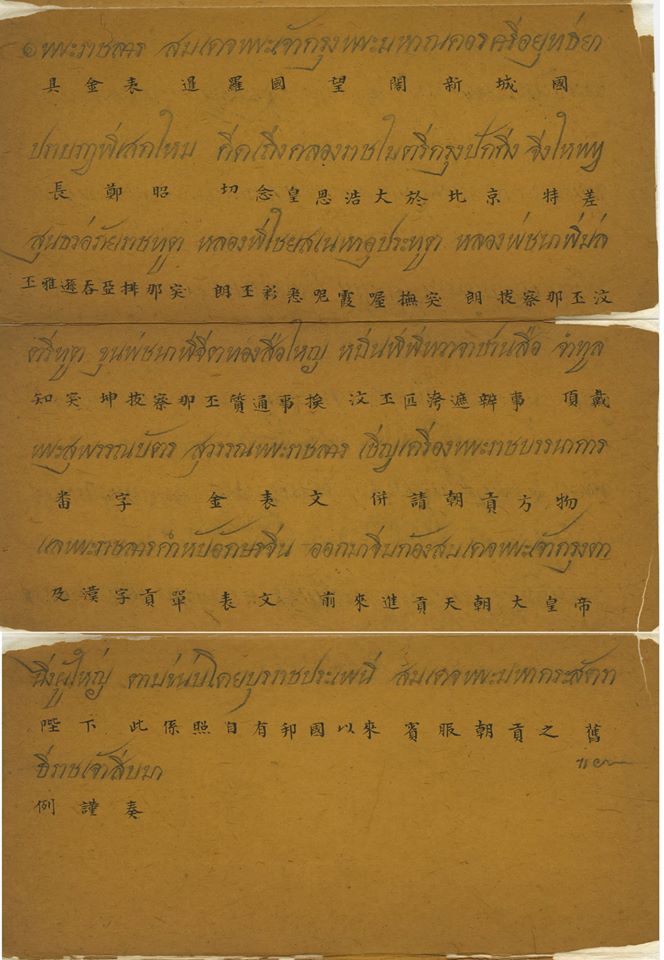 ๑ พระราชสาร สมเดจพระเจ้ากรุงพระมหาณคอรศรีอยุทธยา
具金表 暹羅國 望閣新城國
ปราบรฎาพี่เสกใหม คีดเถิงคลองราชไมตรีกรุงปักกึ่ง จึ่งให
長鄭昭 切念皇恩浩大於北京 特差
หลองพี่ไชยสเนหาอุประทูต หลองพ่ชนาพี่ม่ล
丕雅遜吞亞排那突 朗丕彩悉呢霞喔撫突 朗拔察那丕汶
ตรีทูต ขุนพ่ชนาพี่จีตทองสือใหญ่ หมื่นพี่พีทวาจาท่านสือ จำทูล
知突 坤拔察那丕質通事挨 汶丕匹洿遮辦事 頂戴
พระสุพรรณบัตร สุวรรณพระราชสาร เชิญเครื่องพระราชบรรนาการ
畨字 金表文 併請朝貢方物
แลพระราชสารคำหับอักษรจีน ออกมาจีมก้องสมเดจพระเจ้ากรุงตา
及漢字貢單 表文 前來進貢天朝大皇帝
ฉิ่งผู้ใหญ่ ตามขนบโดยบุรราชประเพนี สมเดจพระมหากระสัตรา
陛下 此係照自有邦國以來 賓服朝貢之舊
ธิราชเจ้าสืบมา
例謹奏